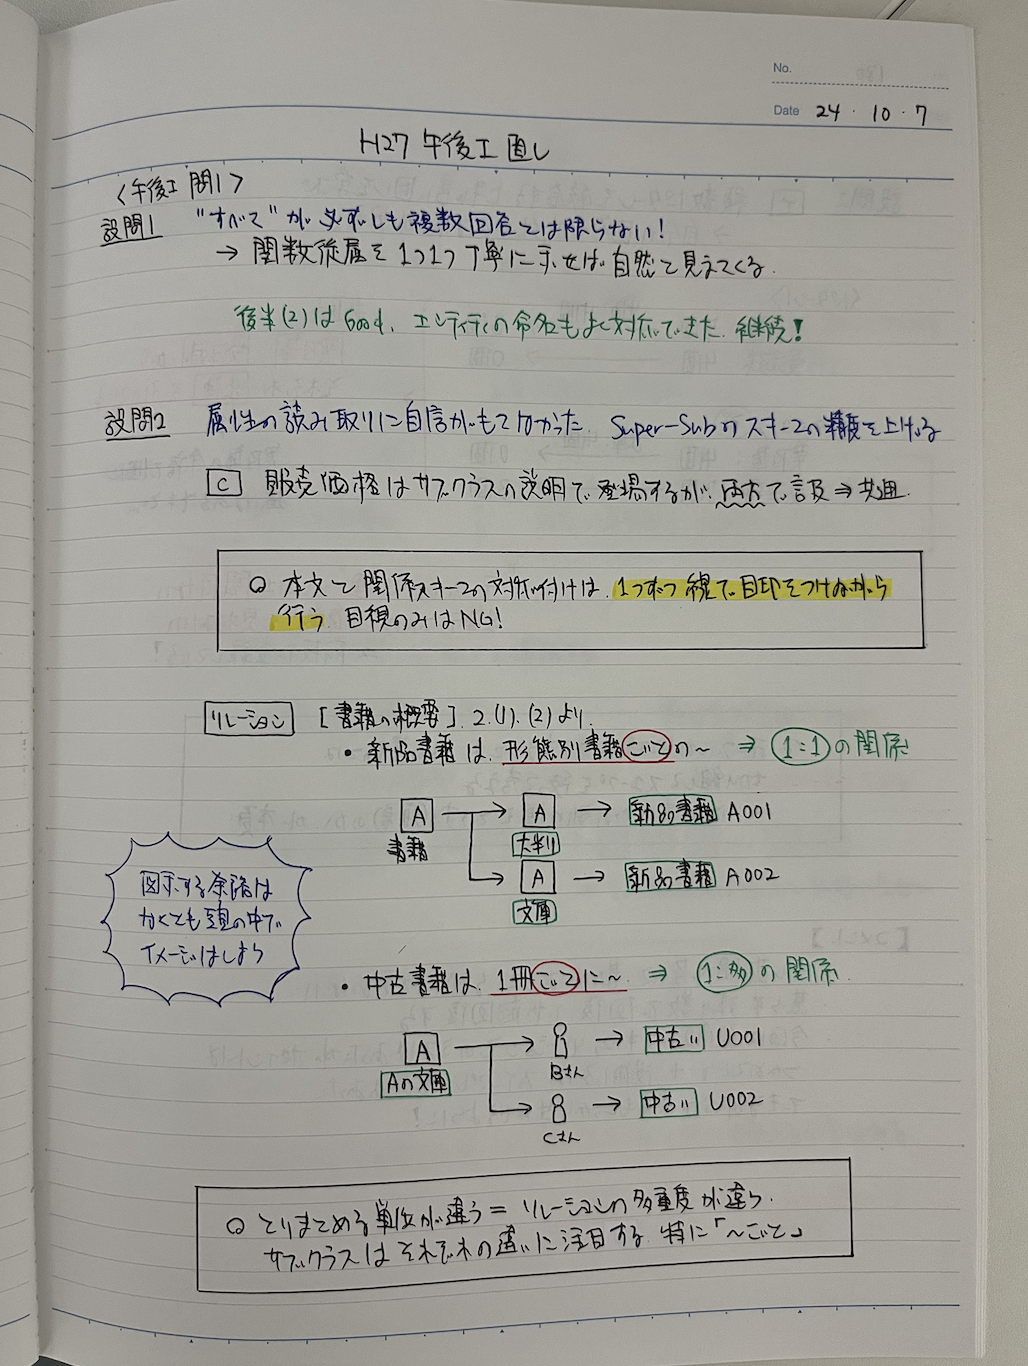 No.
Date 24・10・7
H27 午後I 直し
〈午後I 問1〉
設問1 "すべて"が必ずしも複数回答とは限らない!
→ 関数従属を1つ1つ丁寧に示せば自然と見えてくる.
後半(2)はGood. エンティティの命名もよく対応できた. 継続!
設問2 属性の読み取りに自信がもてなかった. Super-Subのスキーマの精度を上げる
C 販売価格はサブクラスの説明で登場するが、両方で言及 ⇒ 共通.
○ 本文と関係スキーマの対応付けは、1つずつ線で目印をつけながら
行う. 目視のみはNG!
リレーション [書籍の概要]. 2.(1). (2)より.
・新品書籍は、形態別書籍ごとの〜 ⇒ 1:1の関係
A → A → 新品書籍 A001
書籍 大判
A → 新品書籍 A002
文庫
図示する余裕は
なくとも頭の中で
イメージはしよう
・中古書籍は、1冊ごとに〜 ⇒ 1:多の関係.
A → → 中古 U001
Aの文庫 Bさん
→ 中古 U002
Cさん
○ とりまとめる単位が違う = リレーションの多重度が違う.
サブクラスはそれぞれの違いに注目する. 特に「〜ごと」